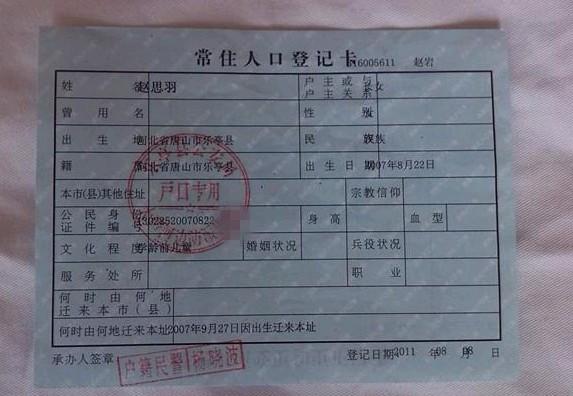 常住人口登记卡 6005611 赵岩
姓 名 赵思羽 户主或与户主关系 女
曾用名 性别 女
出生地 河北省唐山市乐亭县 民族 汉族
籍贯 河北省唐山市乐亭县 出生日期 2007年8月22日
本市(县)其他住址 宗教信仰
公民身份证件编号 02252007082 身高 血型
文化程度 学龄前儿童 婚姻状况 兵役状况
服务处所 职业
何时由何地迁来本市(县)
何时由何地迁来本址 2007年9月27日因出生迁来本址
承办人签章 户籍民警 杨晓波 登记日期 2011年08月08日
户口专用